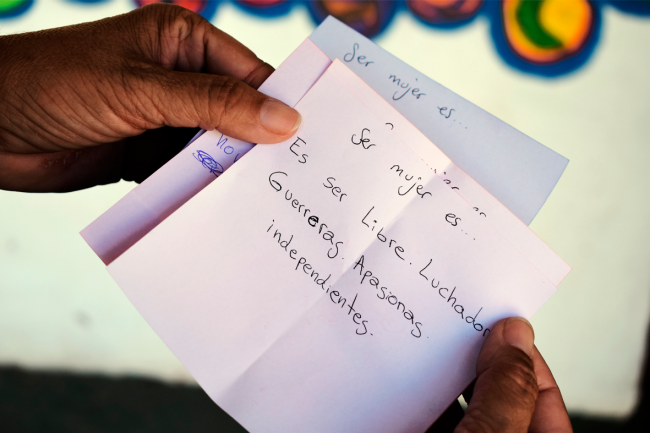 Ser mujer es...
Ser mujer es...
Es ser Libre. Luchador
Guerreras. Apasionas.
independientes.